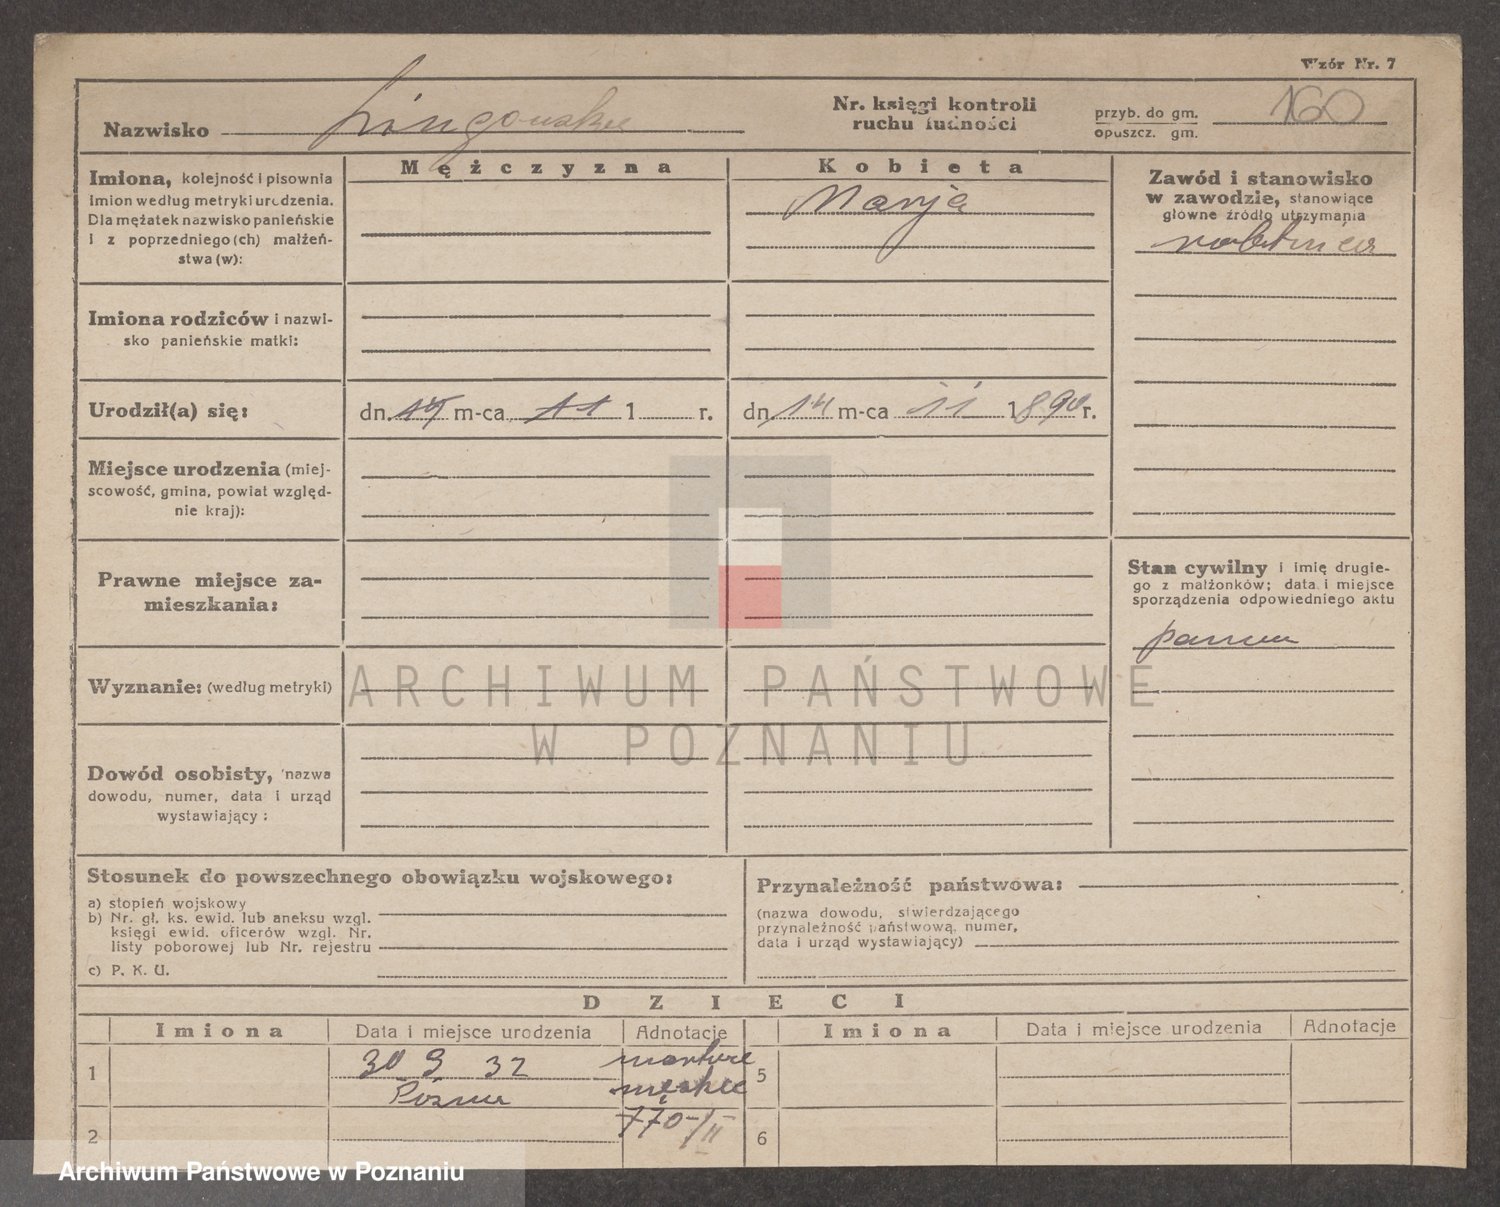 Wzór Nr. 7
Nazwisko
Nr. księgi kontroli
ruchu ludności
przyb. do gm.
opuszcz. gm.
160
Imiona, kolejność i pisownia
imion według metryki urodzenia.
Dla mężatek nazwisko panieńskie
i z poprzedniego (ch) małżeń-
stwa (w):
Mężczyzna
Kobieta
Marja
Zawód i stanowisko
w zawodzie, stanowiące
główne źródło utrzymania
robotnica
Imiona rodziców i nazwi-
sko panieńskie matki:
Urodził(a) się:
dn. 14 m-ca 11 1 r.
dn. 14 m-ca 11 1890 r.
Miejsce urodzenia (miej-
scowość, gmina, powiat względ-
nie kraj):
Prawne miejsce za-
mieszkania:
Stan cywilny i imię drugie-
go z małżonków; data i miejsce
sporządzenia odpowiedniego aktu
panna
Wyznanie: (według metryki)
Dowód osobisty, nazwa
dowodu, numer, data i urząd
wystawiający :
Stosunek do powszechnego obowiązku wojskowego:
a) stopień wojskowy
b) Nr. gł. ks. ewid. lub aneksu wzgl.
księgi ewid. oficerów wzgl. Nr.
listy poborowej lub Nr. rejestru
c) P. K. U.
Przynależność państwowa:
(nazwa dowodu, stwierdzającego
przynależność państwową, numer,
data i urząd wystawiający)
DZIECI
Imiona Data i miejsce urodzenia Adnotacje Imiona Data i miejsce urodzenia Adnotacje
1 30 9 32 martwe 5
męskie
770/II
2 6
ARCHIWUM PAŃSTWOWE
W POZNANIU
Archiwum Państwowe w Poznaniu